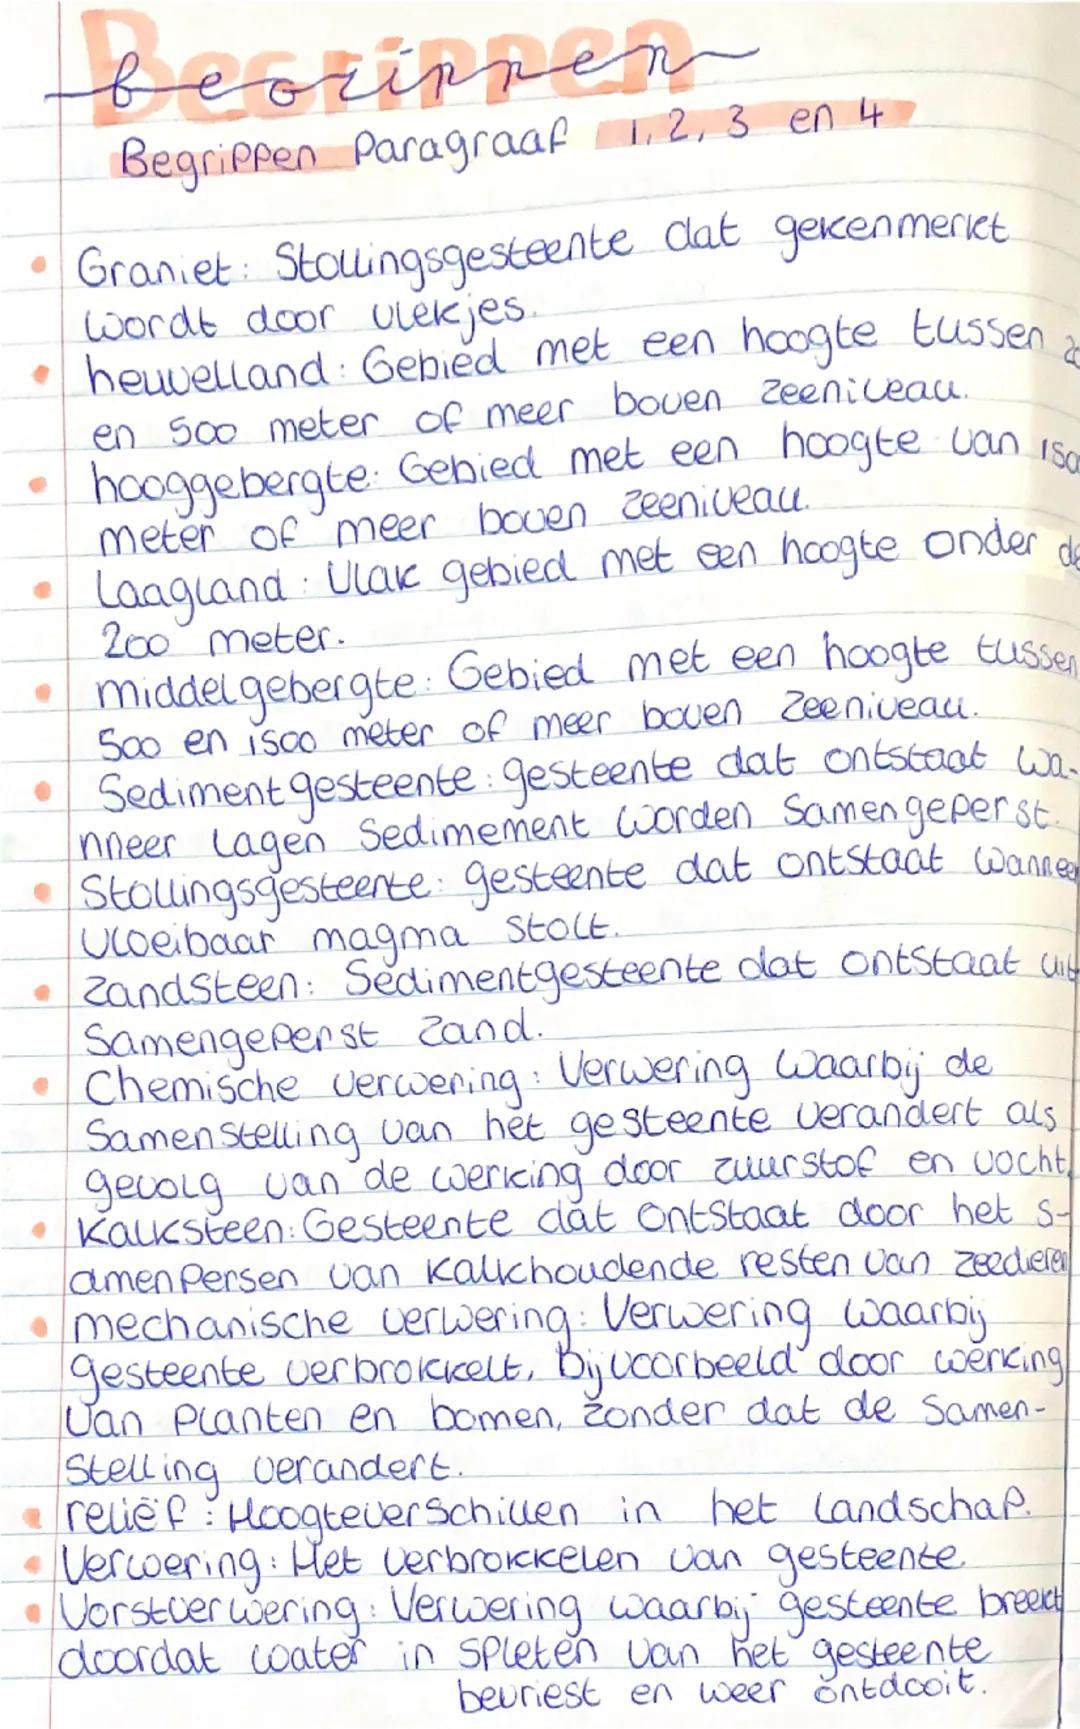 Begrippen
begrippen
Begrippen Paragraaf 1, 2, 3 en 4
• Graniet: Stollingsgesteente dat gekenmerkt
wordt door vlekjes.
• heuvelland: Gebied met een hoogte tussen
en 500 meter of meer boven zeeniveau.
• hooggebergte: Gebied met een hoogte van
meter of meer boven zeeniveau.
• Laagland: Vlak gebied met een hoogte onder de
200 meter.
• middelgebergte: Gebied met een hoogte tussen
500 en 1500 meter of meer boven zeeniveau.
• Sedimentgesteente: gesteente dat ontstaat wa-
nneer lagen Sedimement worden Samengeperst.
• Stollingsgesteente: gesteente dat ontstaat wanneer
vloeibaar magma stolt.
• Zandsteen: Sedimentgesteente dat ontstaat uit
Samengeperst Zand.
• Chemische verwering: Verwering waarbij de
Samenstelling van het gesteente verandert als
gevolg van de werking door zuurstof en vocht.
• Kalksteen: Gesteente dat ontstaat door het s-
amenpersen van kalkhoudende resten van zeedieren
• mechanische verwering: Verwering waarbij
gesteente verbrokkelt, bijvoorbeeld door werking
van planten en bomen, zonder dat de Samen-
stelling verandert.
• reliëf: Hoogteverschillen in het landschap.
• Verwering: Het verbrokkelen van gesteente.
• Vorstverwering: Verwering waarbij gesteente breekt
doordat water in spleten van het gesteente
bevriest en weer ontdooit.